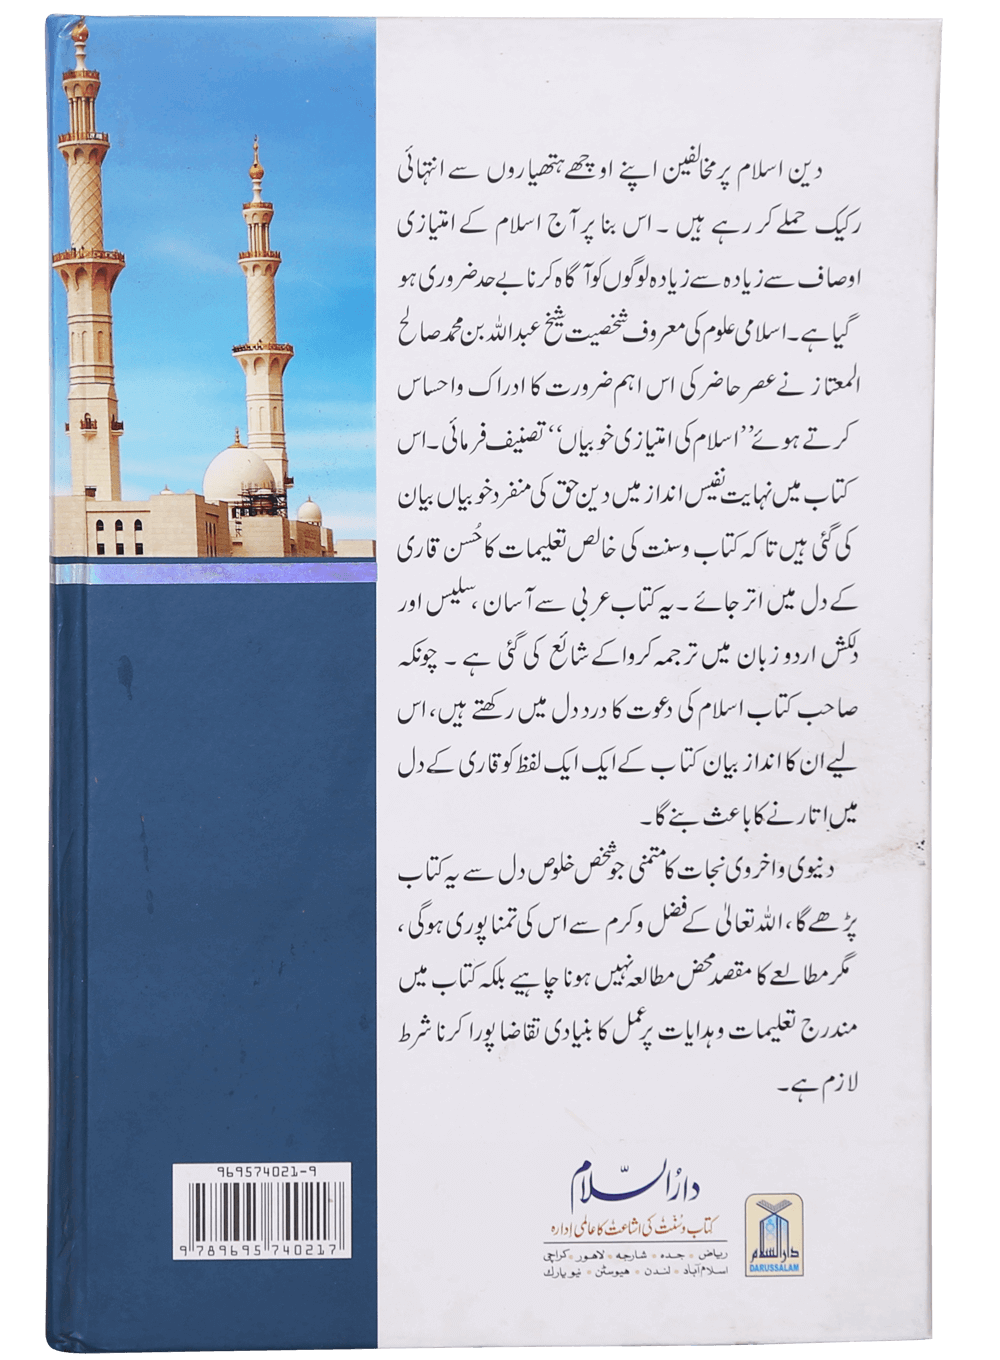 دین اسلام پر مخالفین اپنے اوچھے ہتھیاروں سے انتہائی
رکیک حملے کر رہے ہیں ۔ اس بنا پر آج اسلام کے امتیازی
اوصاف سے زیادہ سے زیادہ لوگوں کو آگاہ کرنا بے حد ضروری ہو
گیا ہے۔ اسلامی علوم کی معروف شخصیت شیخ عبداللہ بن محمد صالح
المعتاز نے عصر حاضر کی اس اہم ضرورت کا ادراک و احساس
کرتے ہوئے ’’اسلام کی امتیازی خوبیاں‘‘ تصنیف فرمائی۔ اس
کتاب میں نہایت نفیس انداز میں دین حق کی منفرد خوبیاں بیان
کی گئی ہیں تا کہ کتاب و سنت کی خالص تعلیمات کا حُسن قاری
کے دل میں اتر جائے ۔ یہ کتاب عربی سے آسان ، سلیس اور
دلکش اردو زبان میں ترجمہ کروا کے شائع کی گئی ہے ۔ چونکہ
صاحب کتاب اسلام کی دعوت کا درد دل میں رکھتے ہیں، اس
لیے ان کا انداز بیان کتاب کے ایک ایک لفظ کو قاری کے دل
میں اتارنے کا باعث بنے گا۔
دنیوی و اخروی نجات کا متمنی جو شخص خلوص دل سے یہ کتاب
پڑھے گا ، اللہ تعالیٰ کے فضل و کرم سے اس کی تمنا پوری ہوگی ،
مگر مطالعے کا مقصد محض مطالعہ نہیں ہونا چاہیے بلکہ کتاب میں
مندرج تعلیمات و ہدایات پر عمل کا بنیادی تقاضا پورا کرنا شرط
لازم ہے۔
969574021-9
9 789695 740217
دارُالسّلام
کتاب و سُنّت کی اشاعت کا عالمی اِدارہ
ریاض • جدہ • شارجہ • لاھور • کراچی
اسلام آباد • لندن • ھیوسٹن • نیو یارک
دارالسلام
DARUSSALAM